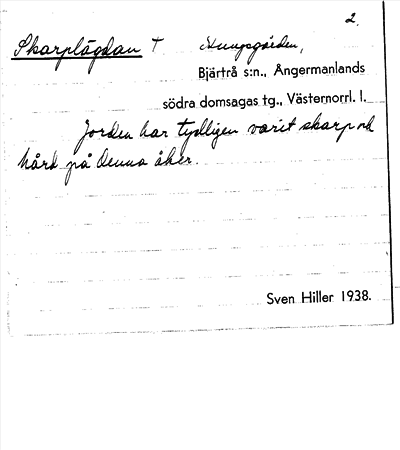 2.
Skarplägdan † Kungsgården,
Bjärtrå s:n., Ångermanlands
södra domsagas tg., Västernorrl. l.
Jorden har tydligen varit skarp och
hård på denna åker.
Sven Hiller 1938.